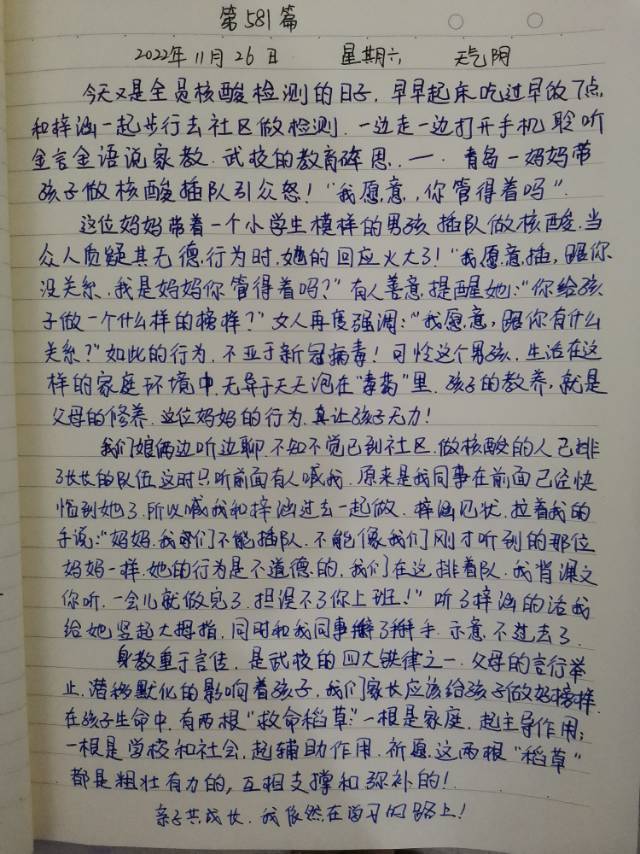 第581篇
2022年11月26日 星期六 天气阴
今天又是全员核酸检测的日子，早早起床吃过早饭7点，
和梓涵一起步行去社区做检测，一边走一边打开手机聆听
金言金语说家教，武校的教育碎思，一，青岛一妈妈带
孩子做核酸插队引众怒！"我愿意，你管得着吗"。
这位妈妈带着一个小学生模样的男孩插队做核酸，当
众人质疑其无德行为时，她的回应火大了！"我愿意插，跟你
没关系，我是妈妈你管得着吗？"有人善意提醒她："你给孩
子做一个什么样的榜样？"女人再度强调："我愿意，跟你有什么
关系？"如此的行为，不亚于新冠病毒！可怜这个男孩，生活在这
样的家庭环境中，无异于天天泡在"毒药"里，孩子的教养，就是
父母的修养，这位妈妈的行为，真让孩子无力！
我们娘俩边听边聊，不知不觉已到社区，做核酸的人已排
了长长的队伍，这时只听前面有人喊我，原来是我同事在前面已经快
临到她了，所以喊我和梓涵过去一起做，梓涵见状，拉着我的
手说："妈妈，我们不能插队，不能像我们刚才听到的那位
妈妈一样，她的行为是不道德的，我们在这排着队，我背课文
你听，一会儿就做完了，担误不了你上班！"听了梓涵的话我
给她竖起大拇指，同时和我同事摆了摆手，示意不过去了。
身教重于言传，是武校的四大铁律之一，父母的言行举
止，潜移默化的影响着孩子，我们家长应该给孩子做好榜样，
在孩子生命中，有两根"救命稻草"一根是家庭，起主导作用；
一根是学校和社会，起辅助作用，祈愿这两根"稻草"
都是粗壮有力的，互相支撑和弥补的！
亲子共成长，我依然在学习的路上！